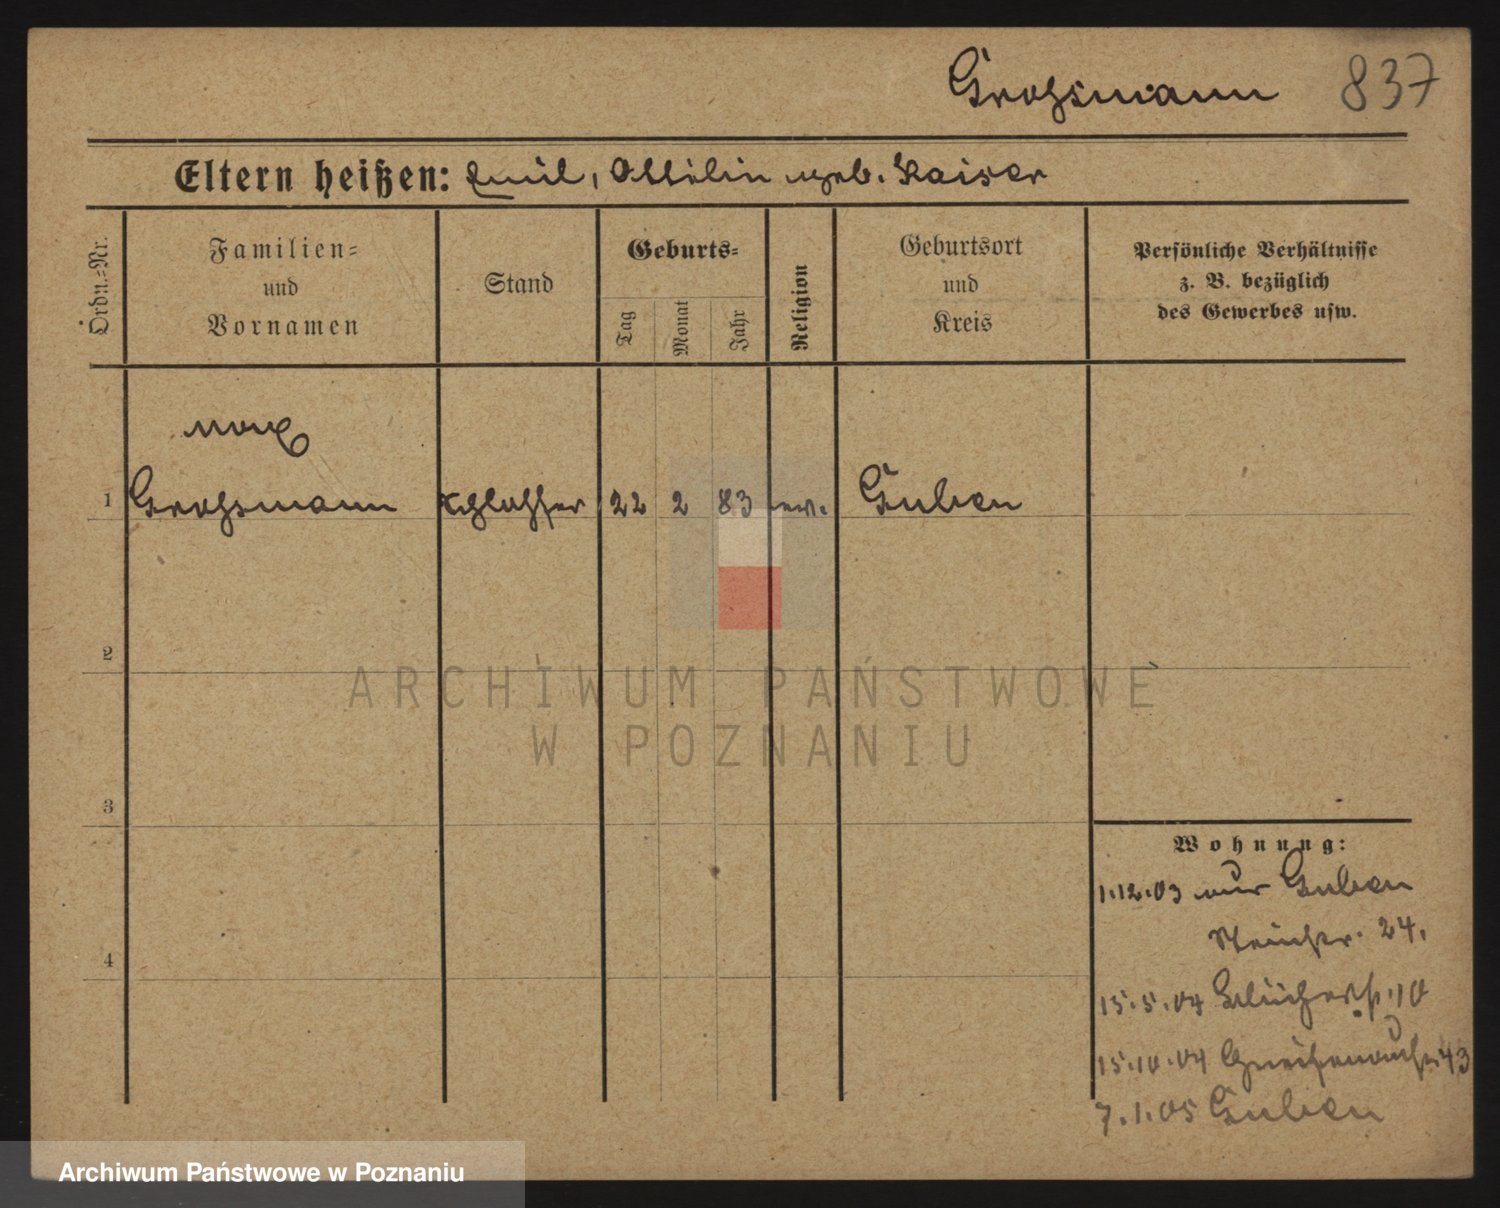 Grossmann 837
Eltern heißen: Emil, Ottilie geb. Kaiser
Ordn.=Nr.
Familien=
und
Vornamen
Stand
Geburts=
Tag
Monat
Jahr
Religion
Geburtsort
und
Kreis
Persönliche Verhältnisse
z. B. bezüglich
des Gewerbes usw.
Max
1 Grossmann Schlosser 22 2 83 ev. Guben
2
3
4
Wohnung:
1.12.03 aus Guben
24.
15.5.04 Blücherstr. 10
15.10.04 Gneisenaustr. 43
7.1.05 Guben
ARCHIWUM PAŃSTWOWE
W POZNANIU
Archiwum Państwowe w Poznaniu